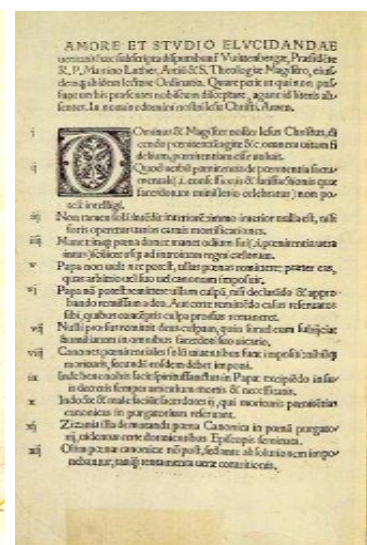 AMORE ET STVDIO ELVCIDANDAE
ueritatis hæc subscripta disputabunt Vuittenbergæ, Præsidēte
R. P. Martino Luther, Artiū & S. Theologiæ Magistro, eius-
dem ibidem lectore Ordinario. Quare petit ut qui non pos-
sunt uerbis præsentes nobiscum disceptare, agant id literis ab-
sentes. In nomine domini nostri Iesu Christi. Amen.
i DOminus & Magister noster Iesus Christus, di
cendo pœnitentiā agite &c. omnem uitam fi
delium, pœnitentiam esse uoluit.
ij Quod uerbū pœnitentia de pœnitentia sacra-
mentali (.i. confessionis & satisfactionis quæ
sacerdotum ministerio celebratur) non po-
test intelligi.
iij Non tamen solā intēdit interiorē: immo interior nulla est, nisi
foris operetur uarias carnis mortificationes.
iiij Manet itaq; pœna donec manet odium sui (.i. pœnitentia uera
intus) scilicet usq; ad introitum regni cælorum.
v Papa non uult nec potest, ullas pœnas remittere; præter eas,
quas arbitrio uel suo uel canonum imposuit.
vj Papa nō potest remittere ullam culpā, nisi declarādo & appro
bando remissam a deo. Aut certe remittēdo casus reseruatos
sibi, quibus contēptis culpa prorsus remaneret.
vij Nulli prorsus remittit deus culpam, quin simul eum subijciat
humiliatum in omnibus sacerdoti suo uicario.
viij Canones pœnitentiales solū uiuentibus sunt impositi: nihilq;
morituris, secundū eosdem debet imponi.
ix Inde bene nobis facit spiritussanctus in Papa: excipiēdo in su-
is decretis semper articulum mortis & necessitatis.
x Indocte & male faciūt sacerdotes ij, qui morituris pœnitētias
canonicas in purgatorium reseruant.
xj Zizania illa de mutanda pœna Canonica in pœnā purgato-
rij, uidentur certe dormientibus Episcopis seminata.
xij Olim pœnæ canonicæ nō post, sed ante absolutionem impo
nebantur, tanq̄ tentamenta ueræ contritionis.